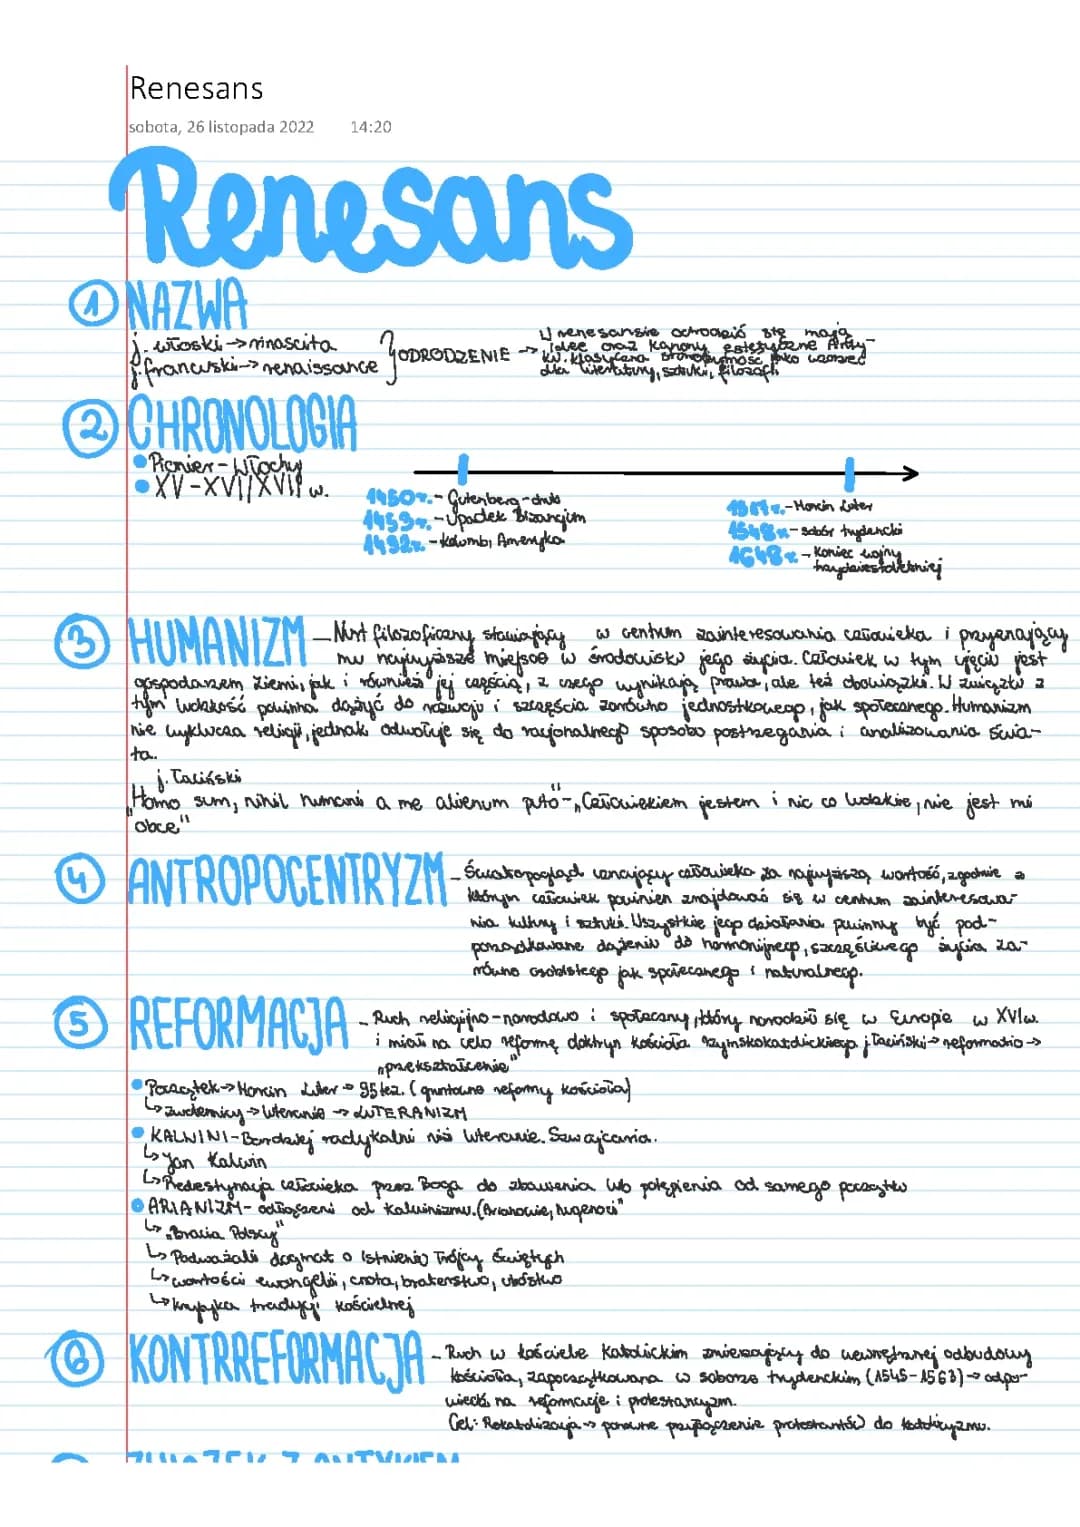 Renesans
sobota, 26 listopada 2022 14:20
Renesans
1 NAZWA
j. włoski → rinascita
j. francuski → renaissance
} ODRODZENIE →
W renesansie odrodzić się mają
idee oraz kanony estetyczne Anty-
ku. Klasyczna starożytność jako wzorzec
dla literatury, sztuki, filozofii
2 CHRONOLOGIA
• Pionier - Włochy
• XV - XVI/XVII w.
1450r. - Gutenberg - druk
1453r. - Upadek Bizancjum
1492r. - Kolumb, Ameryka
1517r. - Marcin Luter
1548r. - sobór trydencki
1648r. - Koniec wojny
trzydziestoletniej
3 HUMANIZM - Nurt filozoficzny stawiający w centrum zainteresowania człowieka i przyznający
mu najwyższe miejsce w środowisku jego życia. Człowiek w tym ujęciu jest
gospodarzem Ziemi, jak i również jej częścią, z czego wynikają prawa, ale też obowiązki. W związku z
tym ludzkość powinna dążyć do rozwoju i szczęścia zarówno jednostkowego, jak społecznego. Humanizm
nie wyklucza religii, jednak odwołuje się do racjonalnego sposobu postrzegania i analizowania świa-
ta.
j. łaciński
"Homo sum, nihil humani a me alienum puto" - „Człowiekiem jestem i nic co ludzkie, nie jest mi
obce"
4 ANTROPOCENTRYZM - Światopogląd uznający człowieka za najwyższą wartość, zgodnie z
którym człowiek powinien znajdować się w centrum zainteresowa-
nia kultury i sztuki. Wszystkie jego działania powinny być pod-
porządkowane dążeniu do harmonijnego, szczęśliwego życia za-
równo osobistego jak społecznego i naturalnego.
5 REFORMACJA - Ruch religijno-narodowo i społeczny, który narodził się w Europie w XVI w.
i miał na celu reformę doktryn Kościoła rzymskokatolickiego. j. łaciński → reformatio →
„przekształcenie"
• Początek → Marcin Luter → 95 tez. (gruntowne reformy kościoła)
↳ zwolennicy → luteranie → LUTERANIZM
• KALWINI - Bardziej radykalni niż luteranie. Szwajcaria.
↳ Jan Kalwin
↳ Predestynacja człowieka przez Boga do zbawienia lub potępienia od samego początku
• ARIANIZM - odłączeni od kalwinizmu. (Arianowie, hugenoci"
↳ „Bracia Polscy"
↳ Podważali dogmat o istnieniu Trójcy Świętych
↳ wartości ewangelii, cnota, braterstwo, ubóstwo
↳ krytyka tradycji kościelnej
6 KONTRREFORMACJA - Ruch w kościele Katolickim zmierzający do wewnętrznej odbudowy
kościoła, zapoczątkowana w soborze trydenckim (1545-1563) → odpo-
wiedź na reformację i protestantyzm.
Cel: Rekatolizacja → ponowne przyłączenie protestantów do katolicyzmu.
ZWIĄZEK Z ANTYKIEM